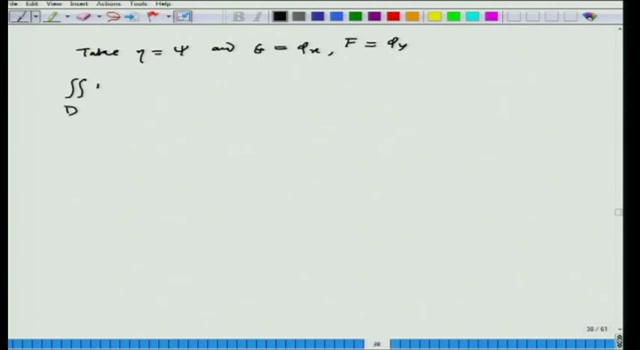 Edit View Insert Actions Tools Help
B I
Take η = ψ and G = φx, F = φy
∬
D
38 / 61
38